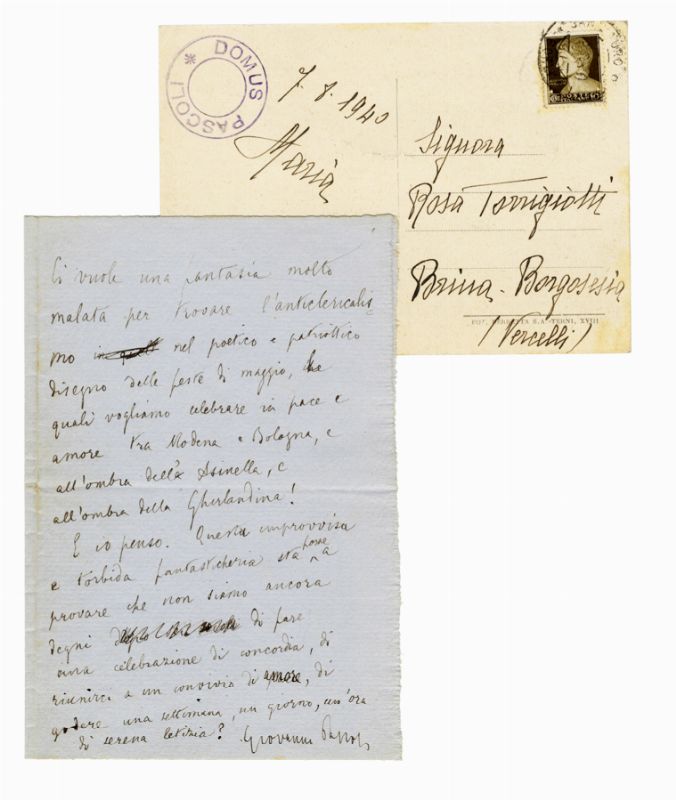 DOMUS PASCOLI *
7.8.1940
Maria
Signora
Rosa Torrigiotti
Brina - Borgosesia
TERNI, XVIII
(Vercelli)
Ci vuole una fantasia molto
malata per trovare l'anticlericalis
mo nel poetico e patriottico
disegno delle feste di maggio, le
quali vogliamo celebrare in pace e
amore tra Modena e Bologna, e
all'ombra della Asinella, e
all'ombra della Ghirlandina!
E io penso. Questa improvvisa
e torbida fantasticheria sta forse a
provare che non siamo ancora
degni di fare
una celebrazione di concordia, di
riunirci a un convivio di amore, di
godere una settimana, un giorno, un'ora
di serena letizia? Giovanni Pascoli